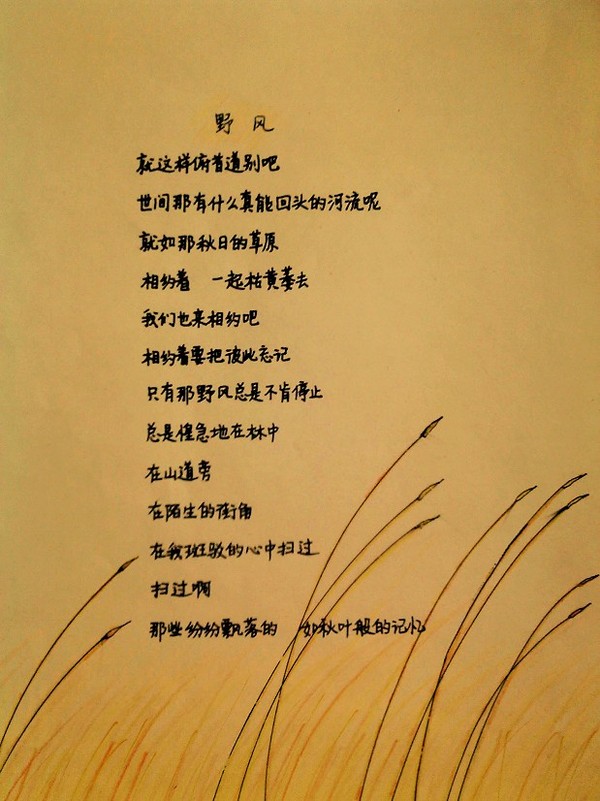 野 风
就这样俯首道别吧
世间那有什么真能回头的河流呢
就如那秋日的草原
相约着 一起枯黄萎去
我们也来相约吧
相约着要把彼此忘记
只有那野风总是不肯停止
总是惶急地在林中
在山道旁
在陌生的街角
在我斑驳的心中扫过
扫过啊
那些纷纷飘落的 如秋叶般的记忆